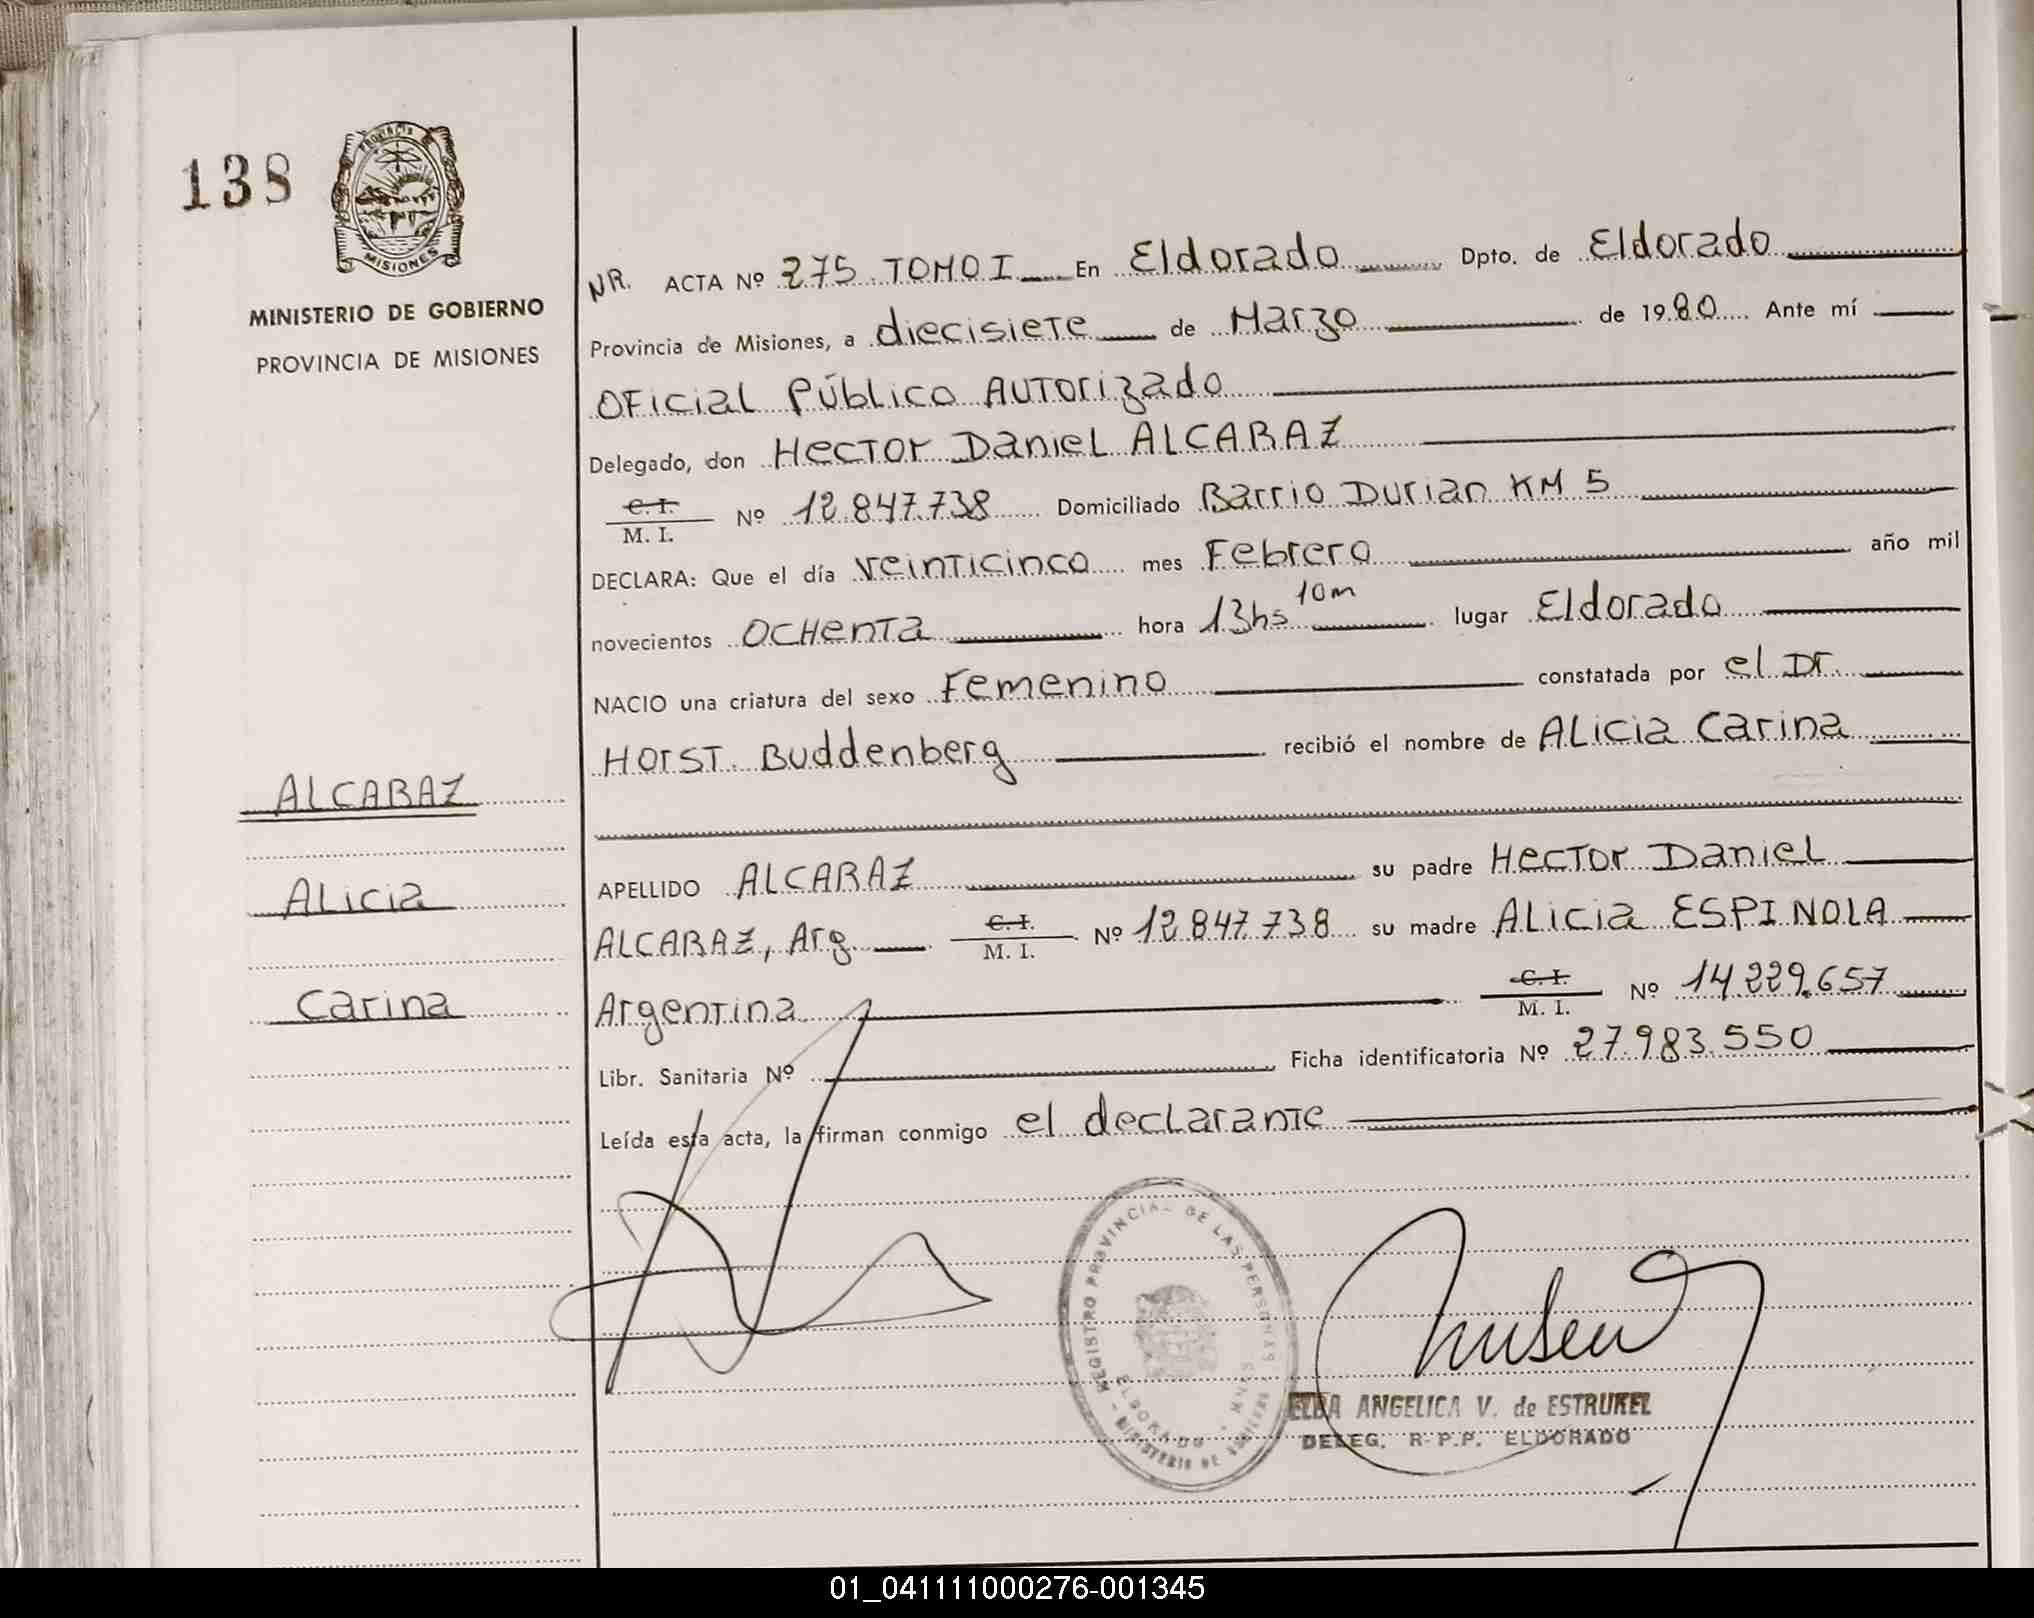 138
PROVINCIA
MISIONES
MINISTERIO DE GOBIERNO
PROVINCIA DE MISIONES
ALCARAZ
Alicia
Carina
NR. ACTA Nº 275 TOMO I En Eldorado Dpto. de Eldorado
Provincia de Misiones, a diecisiete de Marzo de 1980 Ante mí
Oficial Público Autorizado
Delegado, don Hector Daniel ALCARAZ
C. I.
M. I. Nº 12.847.738 Domiciliado Barrio Durian KM 5
DECLARA: Que el día veinticinco mes Febrero año mil
novecientos ochenta hora 13hs 10m lugar Eldorado
NACIO una criatura del sexo Femenino constatada por el Dr.
Horst Buddenberg recibió el nombre de Alicia Carina
APELLIDO ALCARAZ su padre Hector Daniel
ALCARAZ, Arg. C. I. M. I. Nº 12.847.738 su madre Alicia ESPINOLA
Argentina C. I. M. I. Nº 14.229.657
Libr. Sanitaria Nº Ficha identificatoria Nº 27.983.550
Leída esta acta, la firman conmigo el declarante
REGISTRO PROVINCIAL DE LAS PERSONAS
MINISTERIO DE GOBIERNO
ELDORADO
ELBA ANGELICA V. de ESTRUKEL
DELEG. R.P.P. ELDORADO
01_041111000276-001345